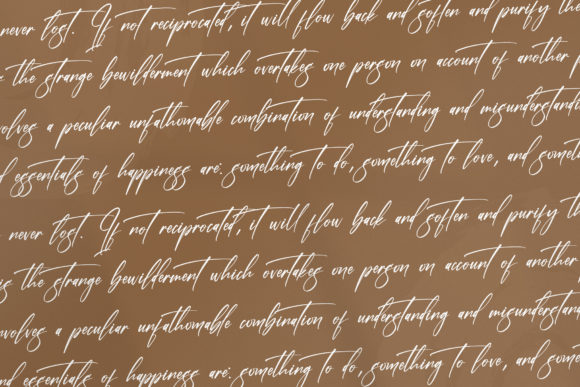 never lost. If not reciprocated, it will flow back and soften and purify the
the strange bewilderment which overtakes one person on account of another p
volves a peculiar unfathomable combination of understanding and misunderstandi
d essentials of happiness are: something to do, something to love, and somet
never lost. If not reciprocated, it will flow back and soften and purify the
is the strange bewilderment which overtakes one person on account of another
nvolves a peculiar unfathomable combination of understanding and misunderstand
nd essentials of happiness are: something to do, something to love, and some